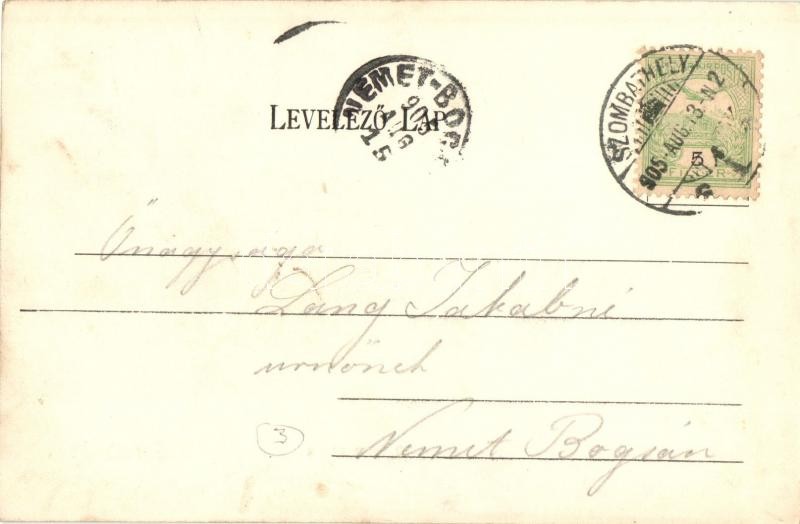 LEVELEZŐ LAP
NÉMET-BOG
905
AUG
15
SZOMBATHELY
905 AUG. 13. N 2
5
FILLÉR
Őnagysága
Lang Jakabné
urnőnek
3
Nemet Bogsán